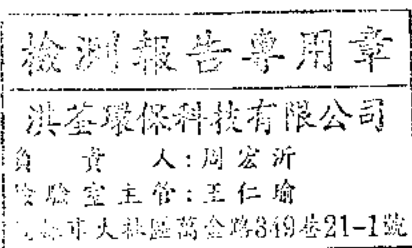 檢測報告專用章
淇荃環保科技有限公司
負責人:周宏沂
檢驗室主管:王仁瑜
市大社區萬金路349巷21-1號